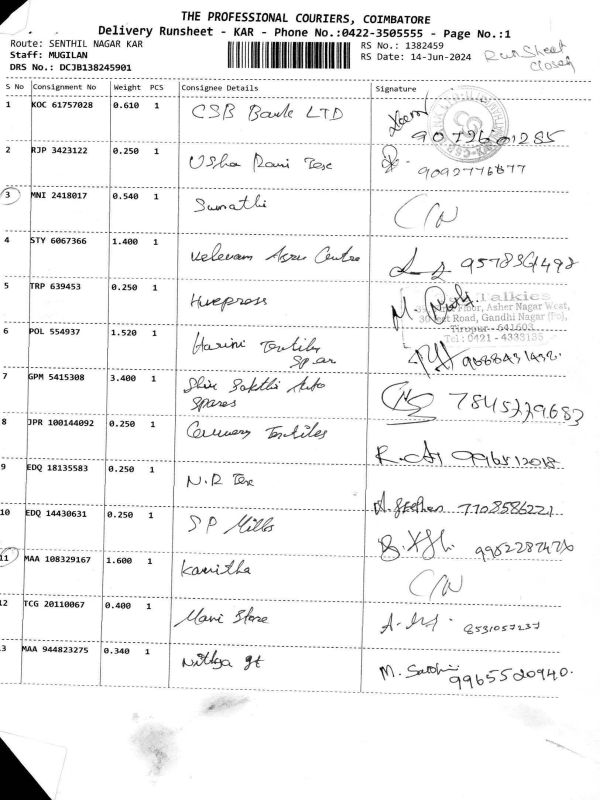 THE PROFESSIONAL COURIERS, COIMBATORE
Delivery Runsheet - KAR - Phone No.:0422-3505555 - Page No.:1
Route: SENTHIL NAGAR KAR RS No.: 1382459
Staff: MUGILAN RS Date: 14-Jun-2024 RunSheet
DRS No.: DCJB138245901 Closed
S No Consignment No Weight PCS Consignee Details Signature
1 KOC 61757028 0.610 1 CSB Bank LTD
2 RJP 3423122 0.250 1 Usha Rani Tex 9092776877
3 MNI 2418017 0.540 1 Sumathi C/N
4 STY 6067366 1.400 1 Velavan Agro Centre
5 TRP 639453 0.250 1 M.
Talkies
Floor, Asher Nagar West,
Road, Gandhi Nagar (Po),
Tirupur - 641603
Tel: 0421 - 4333135
6 POL 554937 1.520 1 Harini Textiles
7 GPM 5415308 3.400 1 Shiv Sakthi Auto
Spares 7845779683
8 JPR 100144092 0.250 1 Textiles
9 EDQ 18135583 0.250 1 N.R Tex 7708586221
10 EDQ 14430631 0.250 1 S P Mills
11 MAA 108329167 1.600 1 Kavitha C/N
12 TCG 20110067 0.400 1 Mani Store 8531057237
3 MAA 944823275 0.340 1 Nithya M. 9965520940.